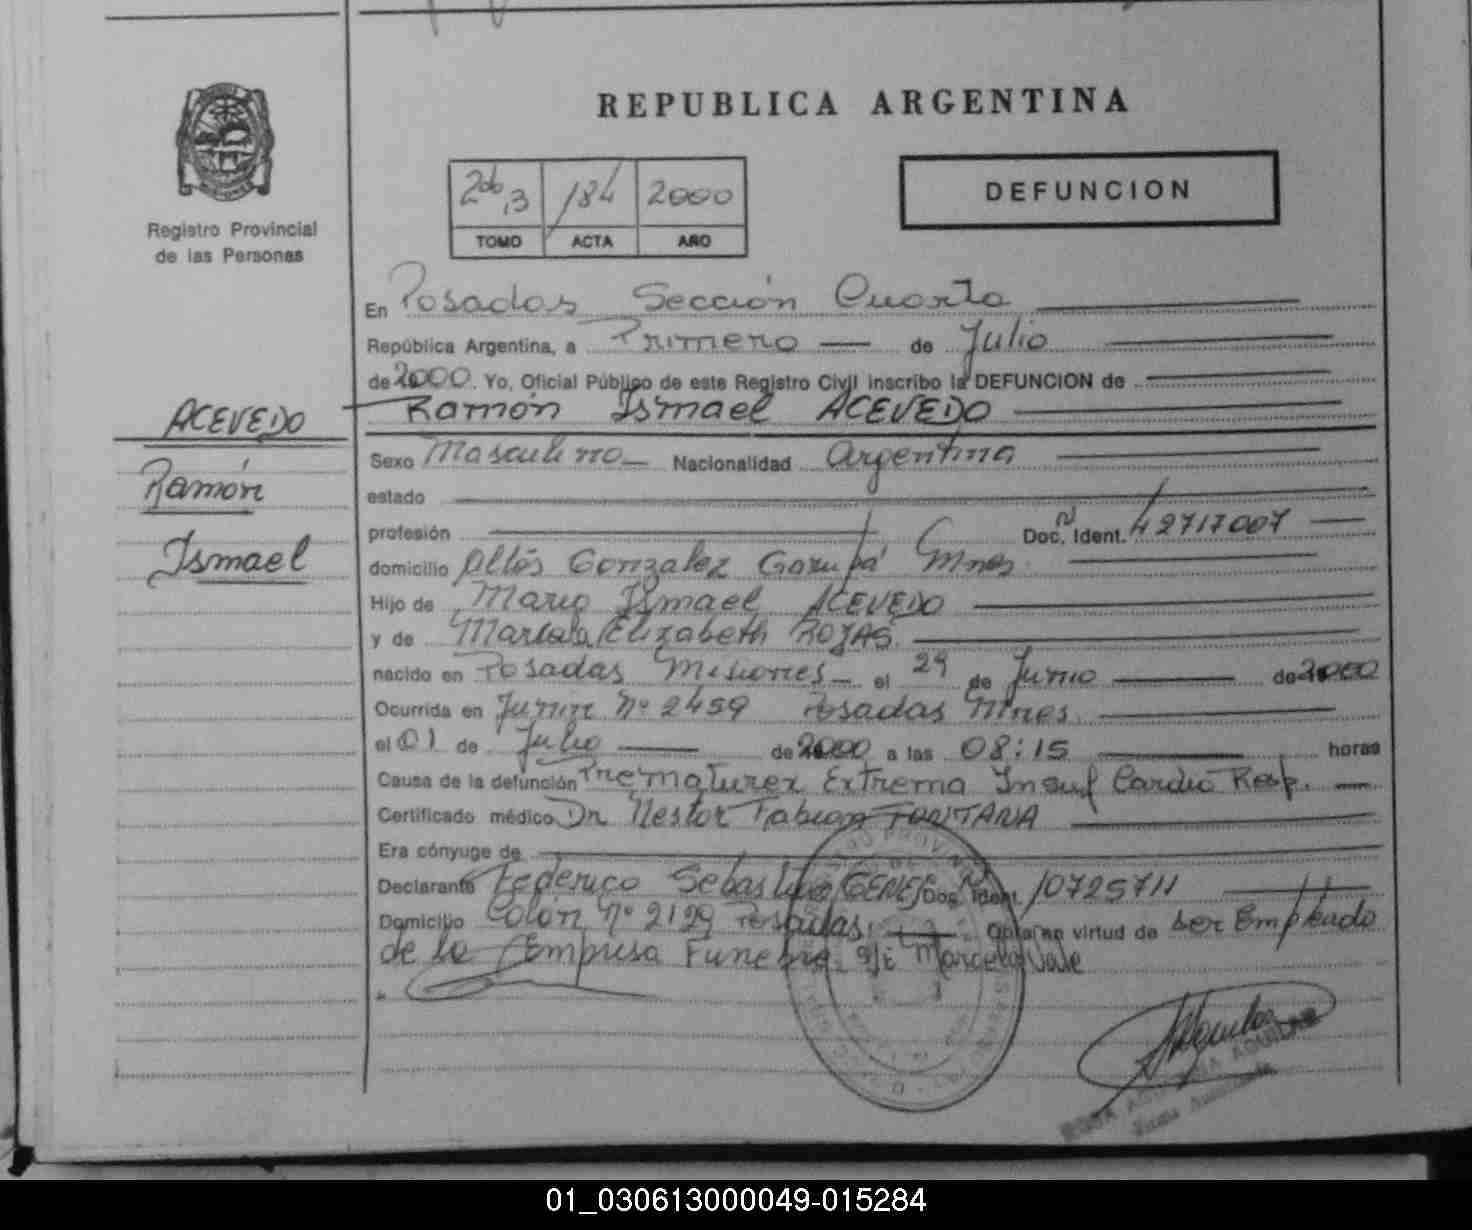 REPUBLICA ARGENTINA
DEFUNCION
Registro Provincial
de las Personas
184 2000
TOMO ACTA AÑO
En Posadas Sección Cuarta
República Argentina, a Primero de Julio
de 2000. Yo, Oficial Público de este Registro Civil inscribo la DEFUNCION de
Ramón Ismael ACEVEDO
ACEVEDO
Ramón
Ismael
Sexo Masculino Nacionalidad Argentina
estado
profesión Doc. Ident. 42717007
domicilio Altos Gonzalez Garupá Mnes.
Hijo de Mario Ismael ACEVEDO
y de Elizabeth ROJAS.
nacido en Posadas Misiones el 29 de Junio de 2000
Ocurrida en Junin Nº 2459 Posadas Mnes.
el 01 de Julio de 2000 a las 08:15 horas
Causa de la defunción Prematurez Extrema Insuf Cardio Resp.
Certificado médico Dr Nestor Fabian FONTANA
Era cónyuge de
Declarante Federico Sebastian Doc. Ident. 10725711
Domicilio Colón Nº 2129 Posadas. Obra en virtud de ser Empleado
de la Empresa Funebre
01_030613000049-015284